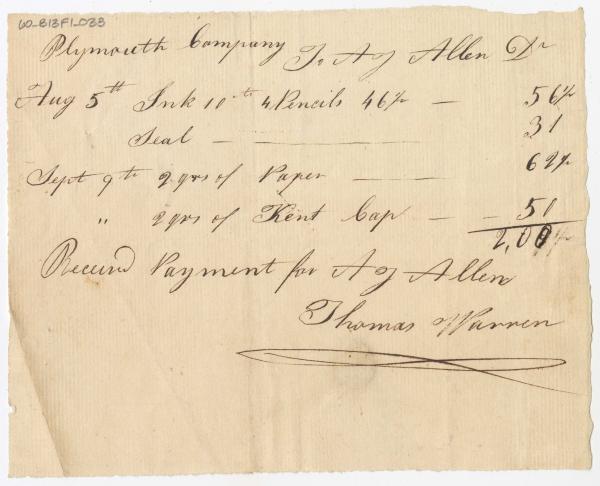 60_813F1_033
Plymouth Company To A J Allen Dr
Aug 5th Ink 10 cts 4 Pencils 46½ — 56½
Seal — 31
Sept 9th 2 qrs of Paper — 62½
" 2 qrs of Kent Cap — 50
2,00
Received Payment for A J Allen
Thomas Warren